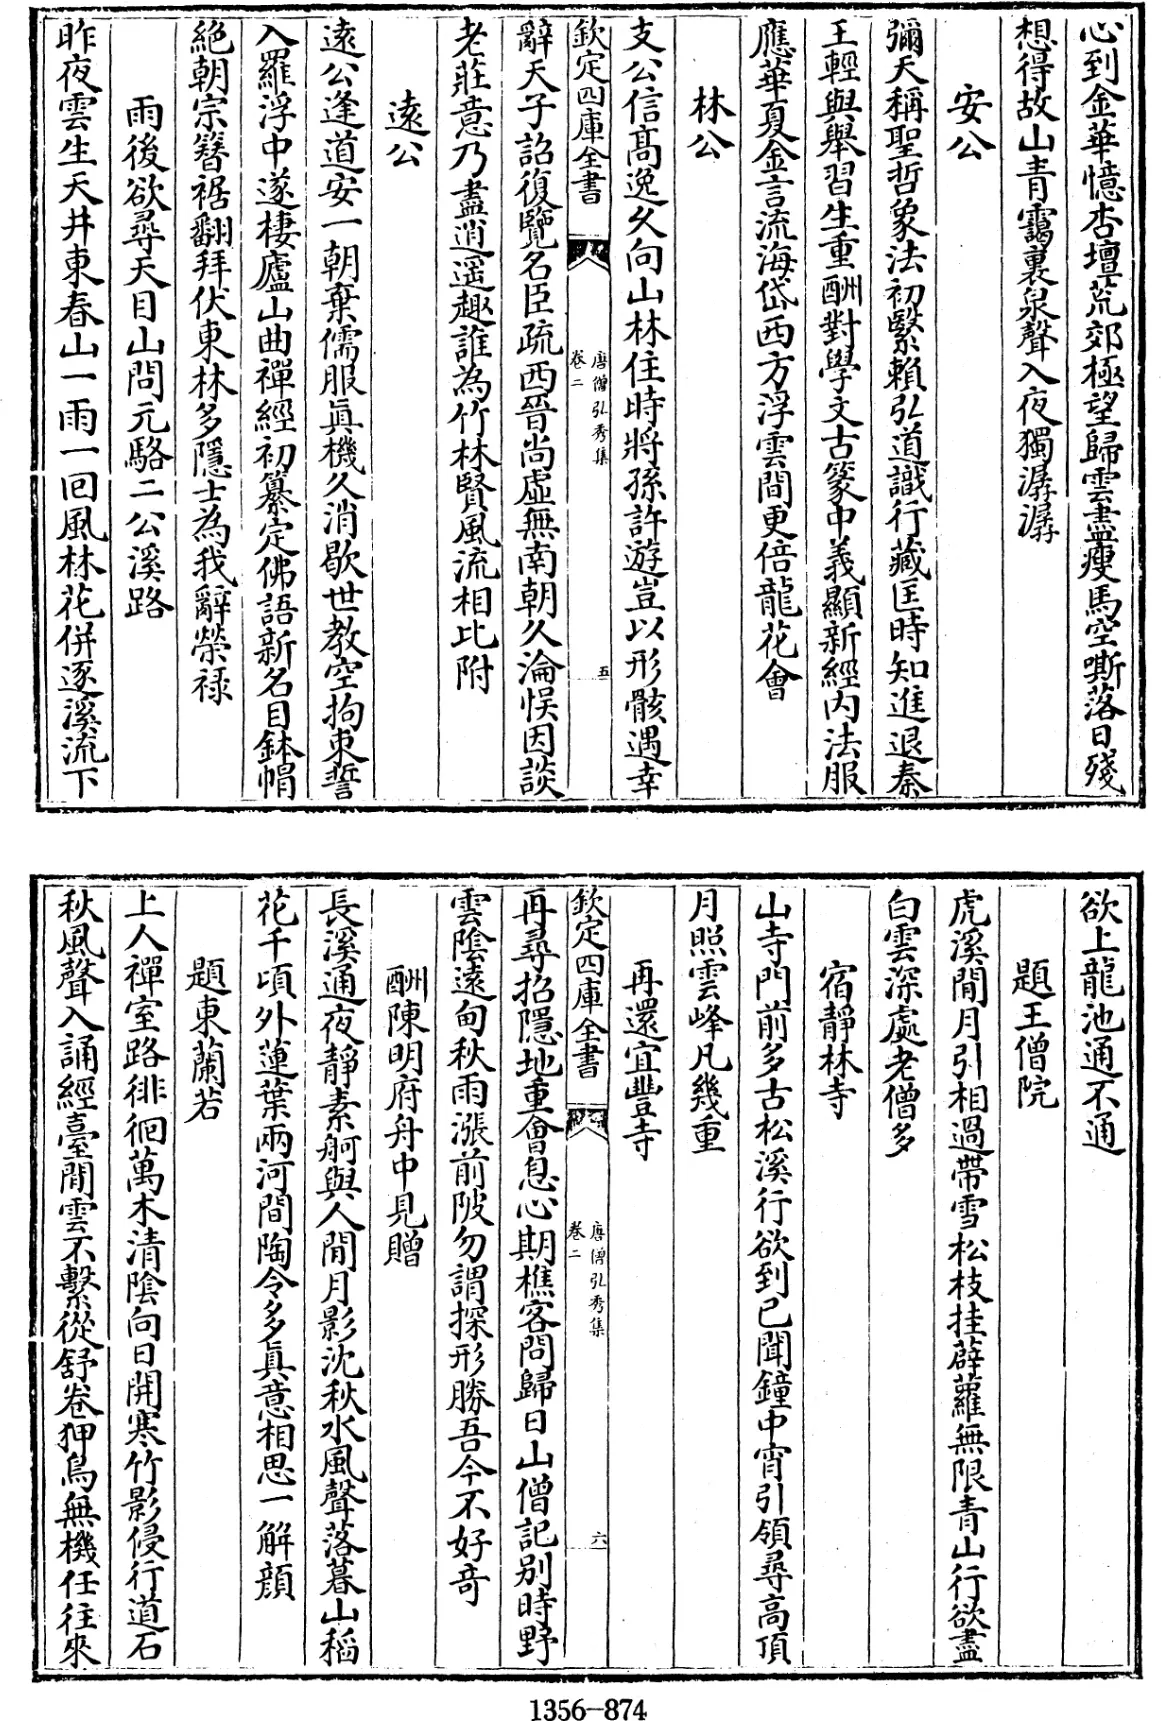 心到金華憶杏壇荒郊極望歸雲盡瘦馬空嘶落日殘
想得故山青靄裏泉聲入夜獨潺潺
安公
彌天稱聖哲象法初繫賴弘道識行藏匡時知進退秦
王輕與舉習生重酬對學文古篆中義顯新經內法服
應華夏金言流海岱西方浮雲間更倍龍花會
林公
支公信髙逸久向山林住時將孫許遊豈以形骸遇幸
欽定四庫全書
唐僧弘秀集
卷二
五
辭天子詔復覽名臣疏西晉尚虛無南朝久淪悞因談
老莊意乃盡逍遥趣誰為竹林賢風流相比附
遠公
遠公逢道安一朝棄儒服真機久消歇世教空拘束誓
入羅浮中遂棲廬山曲禪經初纂定佛語新名目鉢帽
絕朝宗簪裾翻拜伏東林多隱士為我辭榮禄
雨後欲尋天目山問元駱二公溪路
昨夜雲生天井東春山一雨一回風林花併逐溪流下
欲上龍池通不通
題王僧院
虎溪閒月引相過帶雪松枝挂薜蘿無限青山行欲盡
白雲深處老僧多
宿靜林寺
山寺門前多古松溪行欲到已聞鐘中宵引領尋高頂
月照雲峰凡幾重
再還宜豐寺
欽定四庫全書
唐僧弘秀集
卷二
六
再尋招隱地重會息心期樵客問歸日山僧記别時野
雲陰遠甸秋雨漲前陂勿謂探形勝吾今不好竒
酬陳明府舟中見贈
長溪通夜靜素舸與人閒月影沈秋水風聲落暮山稻
花千頃外蓮葉兩河間陶令多真意相思一解顔
題東蘭若
上人禪室路徘徊萬木清陰向日開寒竹影侵行道石
秋風聲入誦經臺閒雲不繫從舒卷狎鳥無機任往來
1356-874